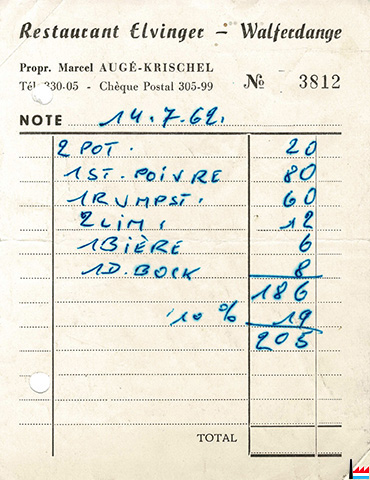 Restaurant Elvinger – Walferdange
Propr. Marcel AUGÉ-KRISCHEL
Tél. 330-05 - Chèque Postal 305-99 № 3812
NOTE 14.7.62.
2 POT. 20
1 ST. POIVRE 80
1 RUMPST. 60
2 LIM. 12
1 BIÈRE 6
1 D. BOCK 8
186
10 % 19
205
TOTAL